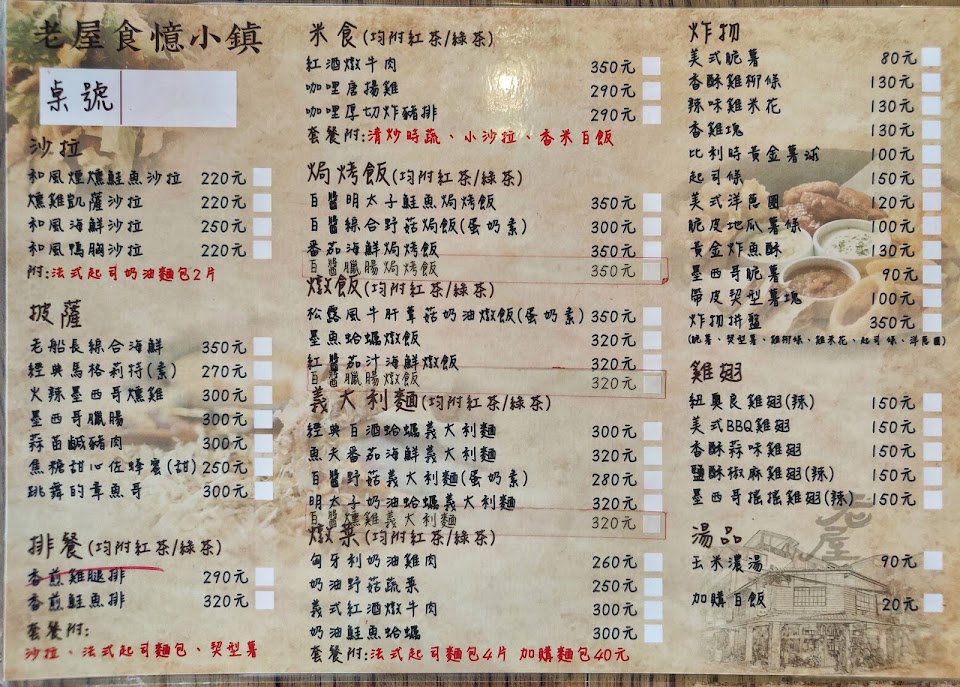 老屋食憶小鎮
桌號
沙拉
和風煙燻鮭魚沙拉 220元
燻雞凱薩沙拉 220元
和風海鮮沙拉 250元
和風鴨胸沙拉 220元
附:法式起司奶油麵包2片
披薩
老船長綜合海鮮 350元
經典馬格莉特(素) 270元
火辣墨西哥燻雞 300元
墨西哥臘腸 300元
蒜苗鹹豬肉 300元
焦糖甜心佐蜂蜜(甜) 250元
跳舞的章魚哥 300元
排餐(均附紅茶/綠茶)
香煎雞腿排 290元
香煎鮭魚排 320元
套餐附:
沙拉、法式起司麵包、契型薯
米食(均附紅茶/綠茶)
紅酒燉牛肉 350元
咖哩唐揚雞 290元
咖哩厚切炸豬排 290元
套餐附:清炒時蔬、小沙拉、香米白飯
焗烤飯(均附紅茶/綠茶)
白醬明太子鮭魚焗烤飯 350元
白醬綜合野菇焗飯(蛋奶素) 300元
番茄海鮮焗烤飯 350元
白醬臘腸焗烤飯 350元
燉飯(均附紅茶/綠茶)
松露風牛肝蕈菇奶油燉飯(蛋奶素) 350元
墨魚蛤蠣燉飯 320元
紅醬茄汁海鮮燉飯 320元
白醬臘腸燉飯 320元
義大利麵(均附紅茶/綠茶)
經典白酒蛤蠣義大利麵 300元
漁夫番茄海鮮義大利麵 320元
白醬野菇義大利麵(蛋奶素) 280元
明太子奶油蛤蠣義大利麵 320元
白醬燻雞義大利麵 320元
燉菜(均附紅茶/綠茶)
匈牙利奶油雞肉 260元
奶油野菇蔬菜 250元
義式紅酒燉牛肉 300元
奶油鮭魚蛤蠣 300元
套餐附:法式起司麵包4片 加購麵包40元
炸物
美式脆薯 80元
香酥雞柳條 130元
辣味雞米花 130元
香雞塊 130元
比利時黃金薯球 100元
起司條 150元
美式洋芭圈 120元
脆皮地瓜薯條 100元
黃金炸魚酥 130元
墨西哥脆薯 90元
帶皮契型薯塊 100元
炸物拼盤 350元
(脆薯、契型薯、雞柳條、雞米花、起司條、洋芭圈)
雞翅
紐奧良雞翅(辣) 150元
美式BBQ雞翅 150元
香酥蒜味雞翅 150元
鹽酥椒麻雞翅(辣) 150元
墨西哥搖搖雞翅(辣) 150元
老屋
湯品
玉米濃湯 90元
加購白飯 20元